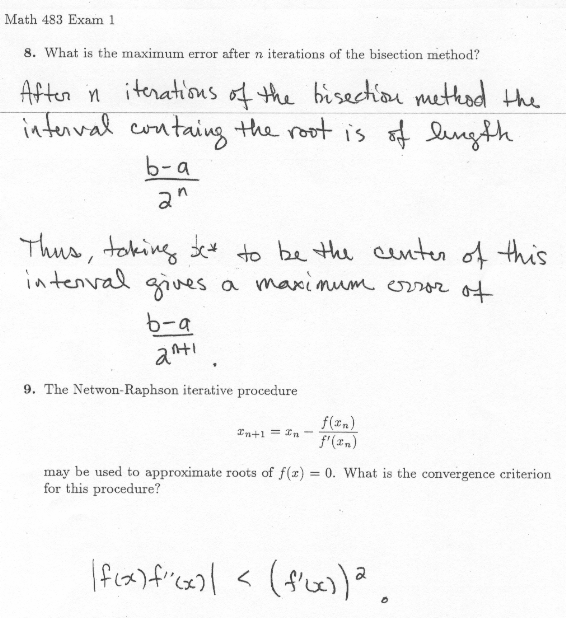 Math 483 Exam 1
8. What is the maximum error after n iterations of the bisection method?
After n iterations of the bisection method the
interval containg the root is of length
b-a
2^n
Thus, taking x* to be the center of this
interval gives a maximum error of
b-a
2^{n+1}.
9. The Netwon-Raphson iterative procedure
x_{n+1} = x_n - f(x_n)
f'(x_n)
may be used to approximate roots of f(x) = 0. What is the convergence criterion
for this procedure?
|f(x)f''(x)| < (f'(x))^2.